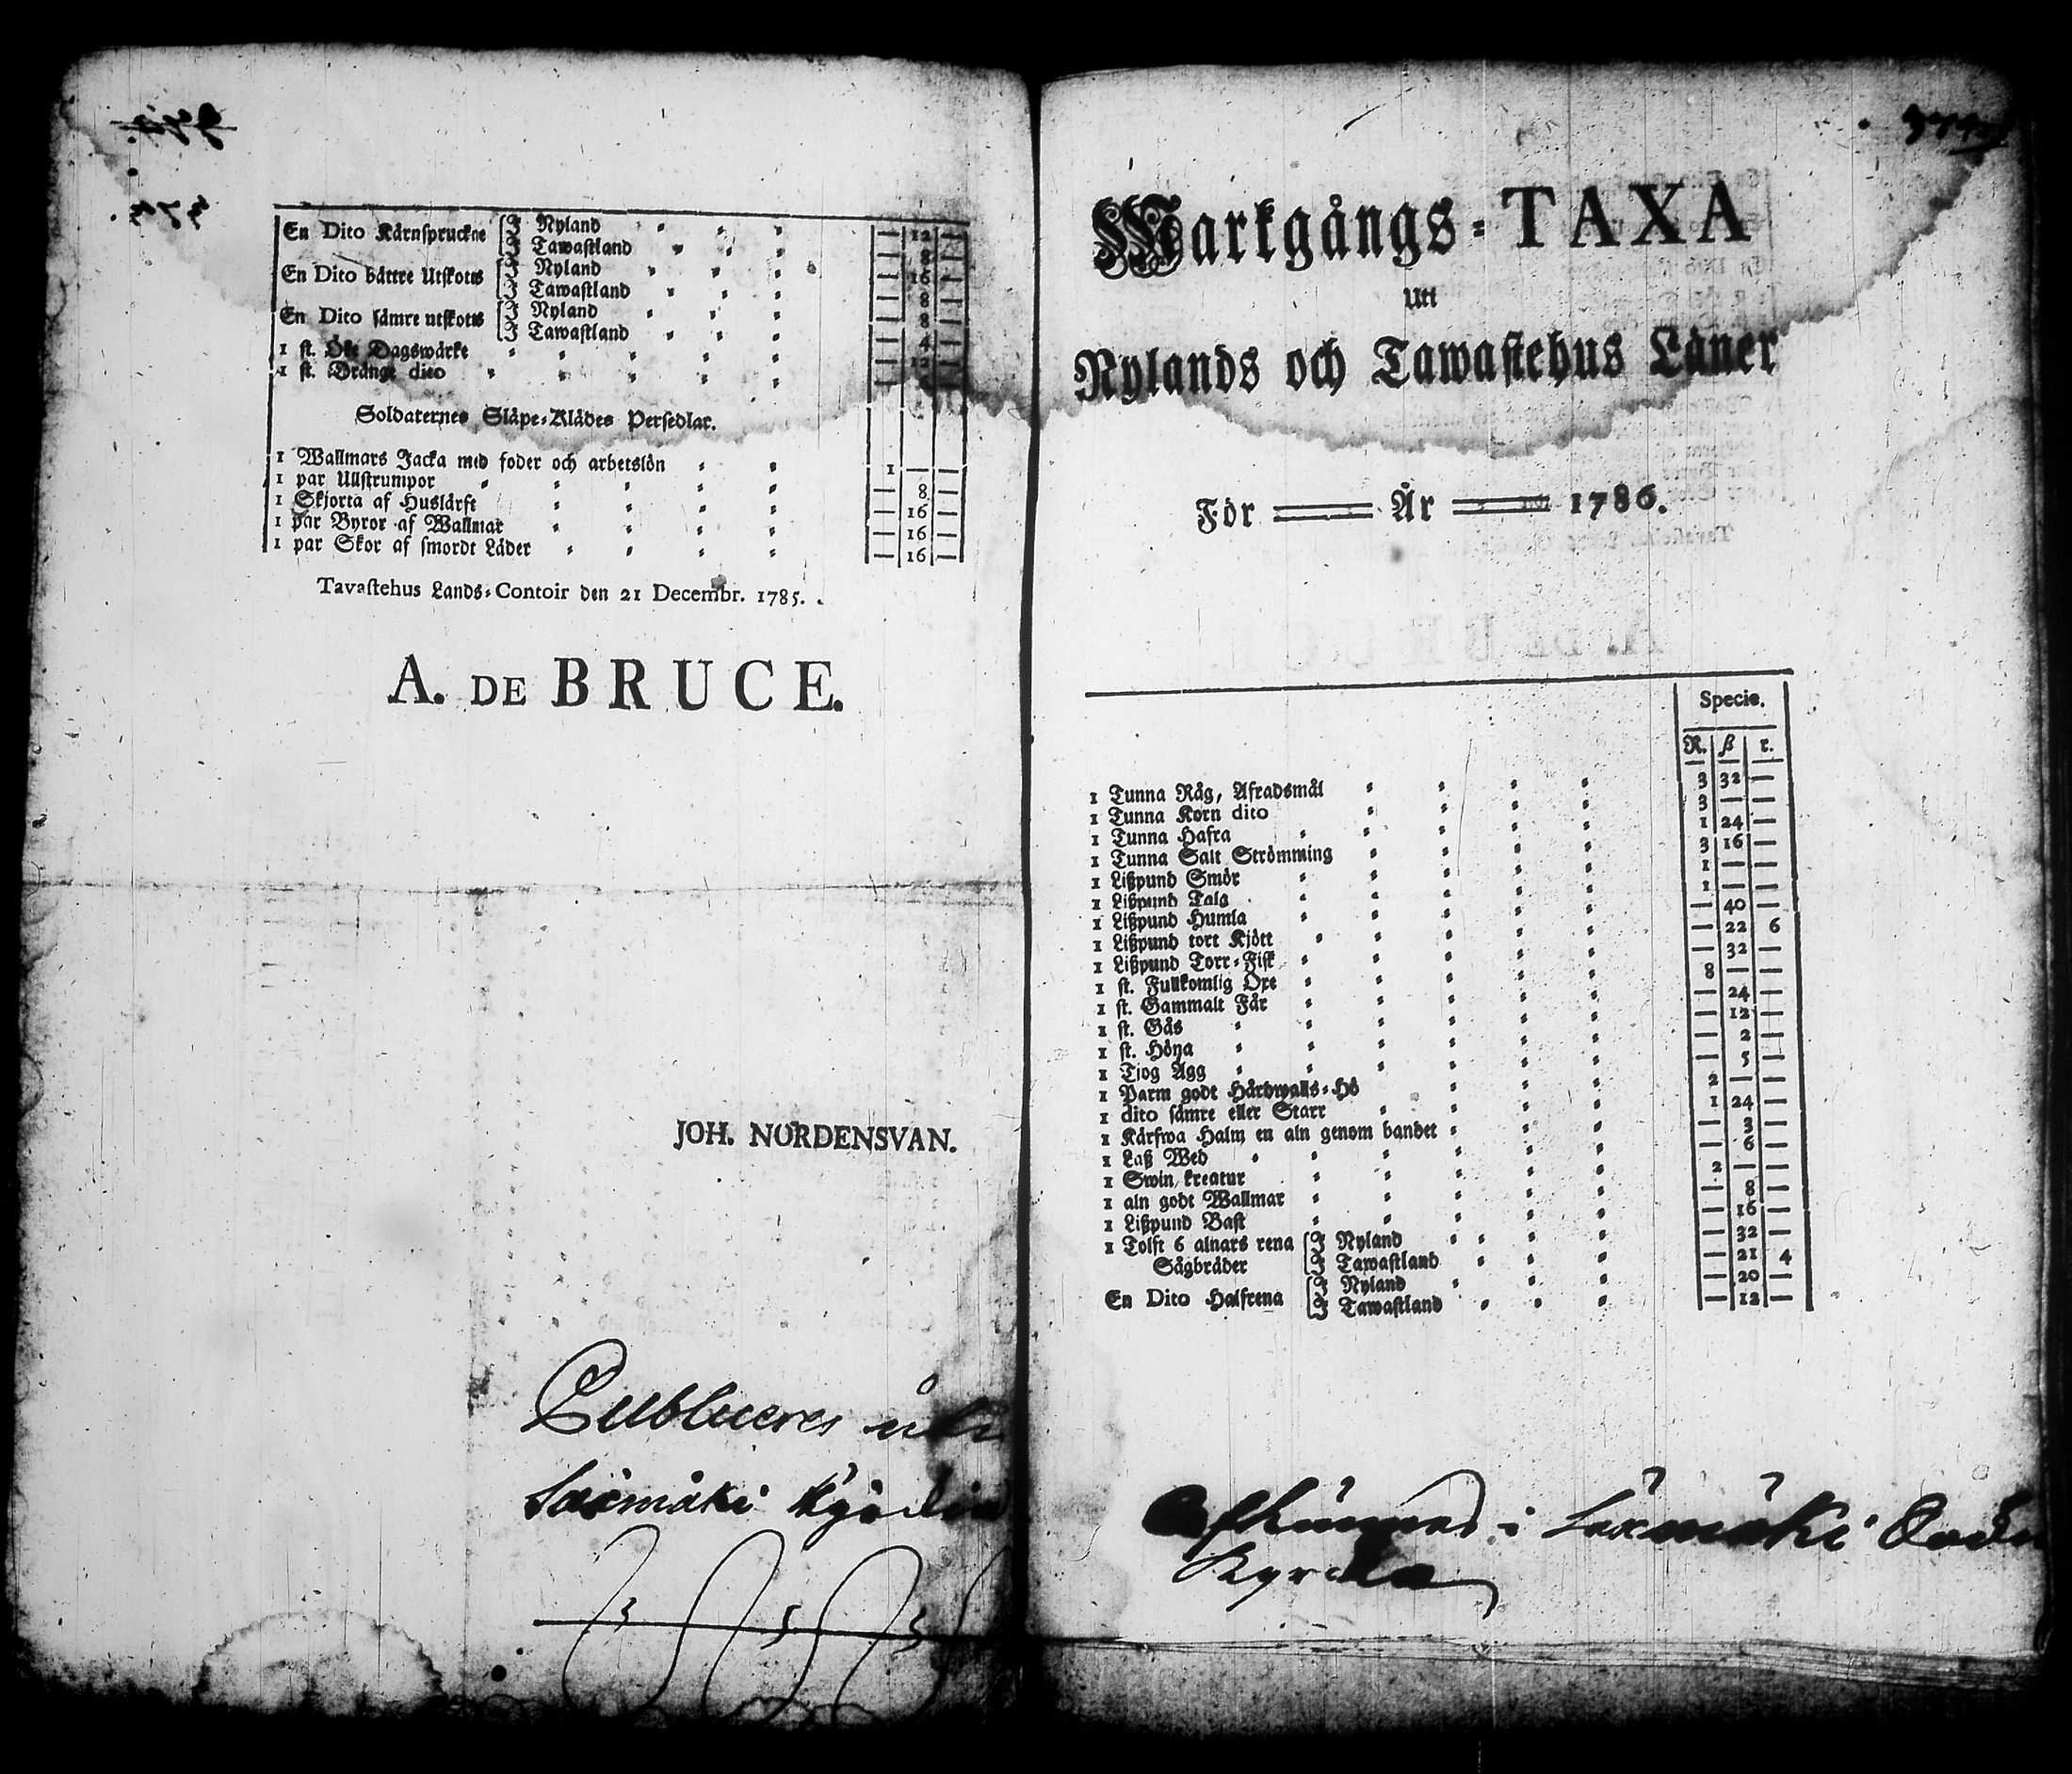 En Dito Kårnspruckne I Nyland — 12 —
I Tawastland — 8 —
En Dito båttre Utskotts I Nyland — 16 —
I Tawastland — 8 —
En Dito såmre utskotts I Nyland — 8 —
I Tawastland — 4 —
1 st. Öke Dagswårke — 12 —
1 st. Drångt dito
Soldaternes Slåpe-Klådes Persedlar.
1 Wallmars Jacka med foder och arbetslön 1 — —
1 par Ullstrumpor — 8 —
1 Skjorta af Huslårft — 16 —
1 par Byxor af Wallmar — 16 —
1 par Skor af smordt Låder — 16 —
Tavastehus Lands-Contoir den 21 Decembr. 1785.
A. DE BRUCE.
JOH. NORDENSVAN.
Publiceras uti
Saxmåki
Markgångs-TAXA
Utt
Nylands och Tawastehus Låner
För År 1786.
Specie.
R. ß r.
1 Tunna Råg, Afradsmål 3 32 —
1 Tunna Korn dito 3 — —
1 Tunna Hafra 1 24 —
1 Tunna Salt Strömming 3 16 —
1 Lißpund Smör 1 — —
1 Lißpund Talg 1 — —
1 Lißpund Humla — 40 —
1 Lißpund tort Kjött — 22 6
1 Lißpund Torr-Fisk — 32 —
1 st. Fullkomlig Oxe 8 — —
1 st. Gammalt Får — 24 —
1 st. Gås — 12 —
1 st. Höna — 2 —
1 Tjog Ägg — 5 —
1 Parm godt Hårdwalls-Hö 2 — —
1 dito såmre eller Starr 1 24 —
1 Kårfwa Halm en aln genom bandet — 3 —
1 Laß Wed — 6 —
1 Swin, kreatur 2 — —
1 aln godt Wallmar — 8 —
1 Lißpund Bast — 16 —
1 Tolft 6 alnars rena I Nyland — 32 —
Sågbråder I Tawastland — 21 4
En Dito Halfrena I Nyland — 20 —
I Tawastland — 12 —
i Saxmåki
Kyrcka